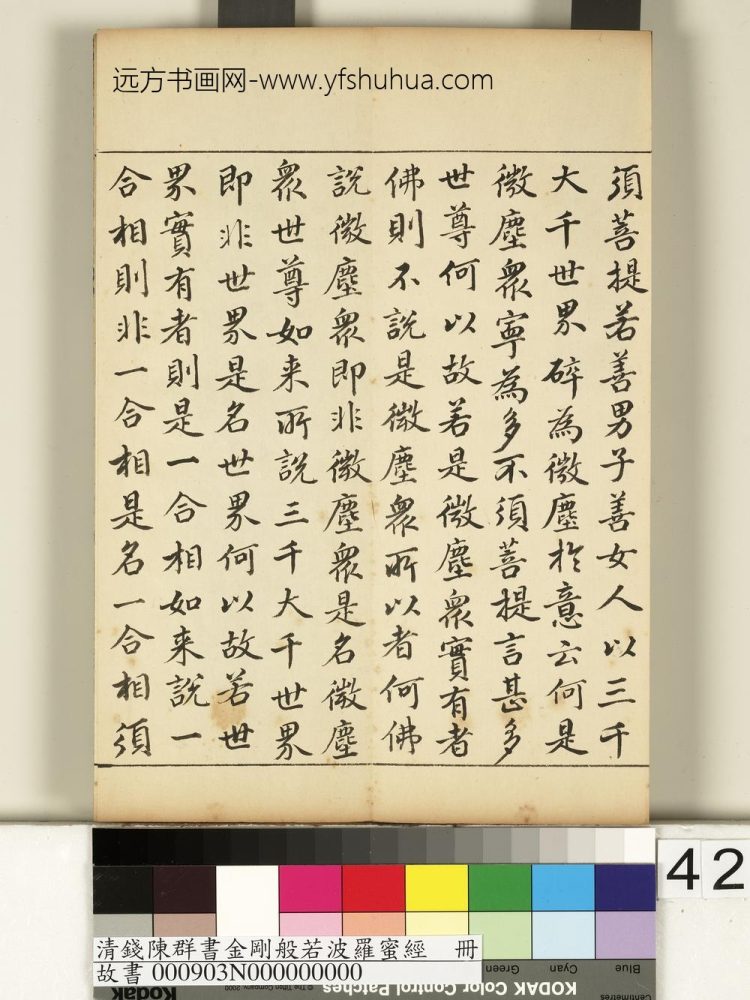 远方书画网-www.yfshuhua.com
須菩提若善男子善女人以三千
大千世界碎為微塵扵意云何是
微塵衆寧為多不須菩提言甚多
世尊何以故若是微塵衆實有者
佛則不說是微塵衆所以者何佛
說微塵衆即非微塵衆是名微塵
衆世尊如来所說三千大千世界
即非世界是名世界何以故若世
界實有者則是一合相如来說一
合相則非一合相是名一合相須
42
清錢陳群書金剛般若波羅蜜經 冊
故書 000903N000000000
© The Tiffen Company, 2000
Green
Cyan
Blue
KODAK Color Control Patches
Centimetres
Kodak